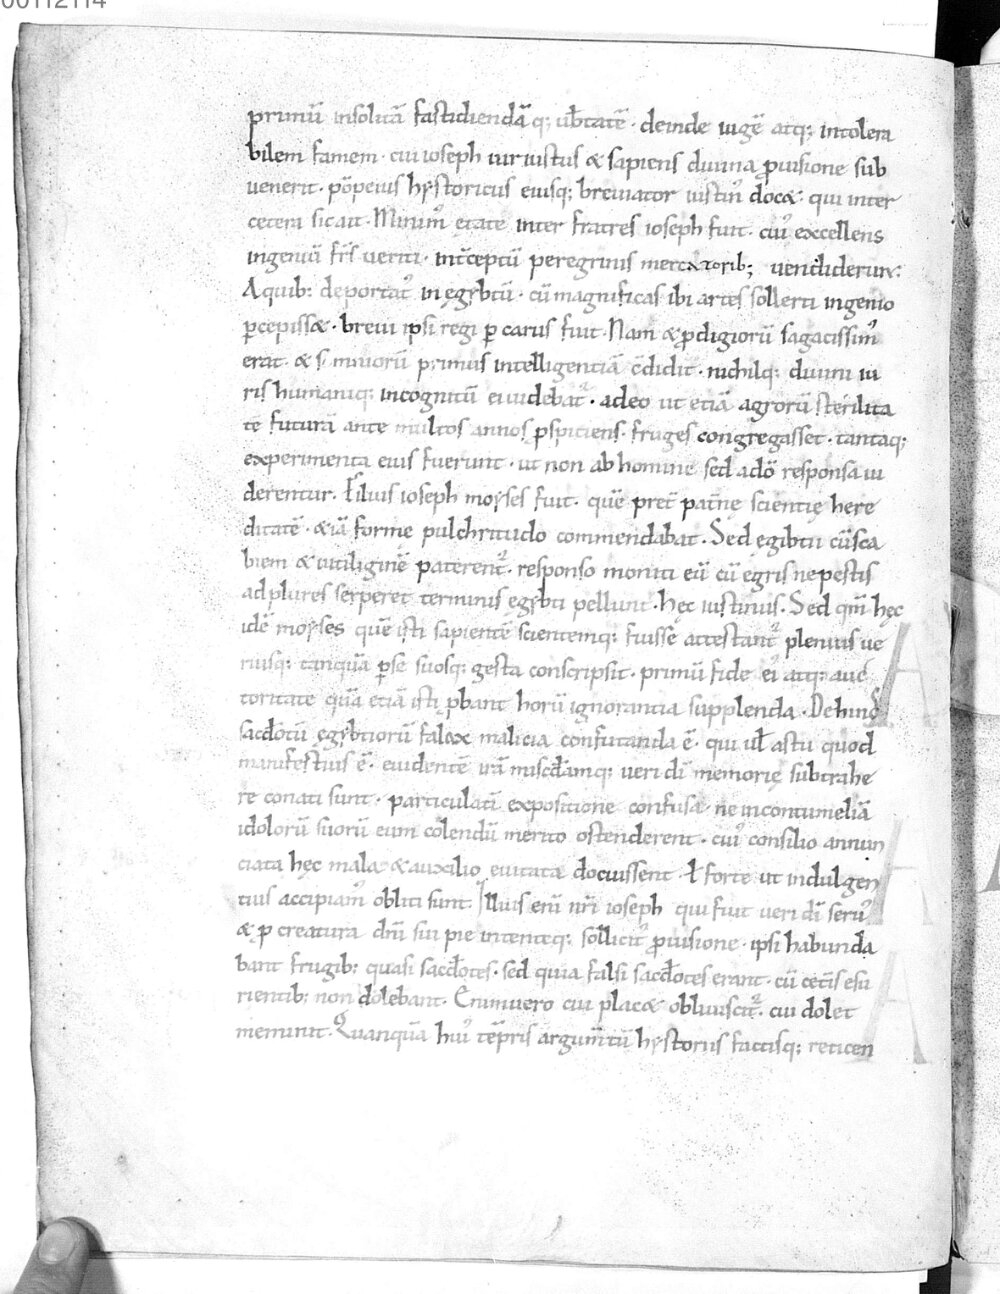 00112114
primū insolitā fastidiendā q; ub̄tatē · deinde iugē atq; intolera
bilem famem · cui ioseph uir iustus & sapiens diuina p̄uisione sub
uenerit · pōpeius hystoricus eiusq; breuiator iustin᾿ doc& · qui inter
cetera sic ait · Minim᾿ etate inter fratres ioseph fuit · cui᾿ excellens
ingeniū fr̄s ueriti · int̄ceptū peregrinis mercatorib; uendiderunt:
A quib: deportat᾿ in egybtū · cū magnificas ibi artes sollerti ingenio
p̄cepiss& · breui ipsi regi p̄ carus fuit · Nam & p̄digiorū sagacissim᾿
erat · & sōniorū primus intelligentiā c̄didit · nichilq; diuini iu
ris humaniq; incognitū ei uidebat᾿ · adeo ut etiā agrorū sterilita
tē futurā ante multos annos p̄spiciens · fruges congregasset · tantaq;
experimenta eius fuerunt · ut non ab homine sed a dō responsa ui
derentur · Filius ioseph moyses fuit · quē pret̄ pat̄nę scientię here
ditatē · &iā forme pulchritudo commendabat · Sed egibtii cū sca
biem & uitiliginē paterent᾿ · responso moniti eū cū egris ne pestis
ad plures serperet terminis egybti pellunt · hęc iustinus · Sed qm̄ hęc
idē moyses quē isti sapientē scientemq; fuisse attestant᾿ plenius ue
riusq; tanquā p̄ se suosq; gesta conscripsit · primū fide ei᾿ atq; auc
toritate quā etiā isti p̄bant horū ignorantia supplenda · Dehinc
sacd̄otū egybtiorū falax malicia confutanda ē · qui ul̄ astu quod
manifestius ē · euidentē irā mis̄cdiamq; ueri dī memorię subtrahe
re conati sunt · particulatī expositione confusa · ne in contumeliā
idolorū suorū eum colendū merito ostenderent · cui᾿ consilio annun
ciata hęc mala · & auxilio euitata docuissent · ł forte ut indulgen
tius accipiam᾿ obliti sunt · Illius enī nr̄i ioseph qui fuit ueri dī seru᾿
& p creatura dn̄i sui pie intenteq; sollicit᾿ p̄uisione · ipsi habunda
bant frugib: quasi sacd̄otes · sed quia falsi sacd̄otes erant · cū cet̄is esu
rientib: non dolebant · Enimuero cui plac& obliuiscit᾿ · cui dolet
meminit · Quanquā hui᾿ tēpris argum̄tū hystoriis fastisq; reticen